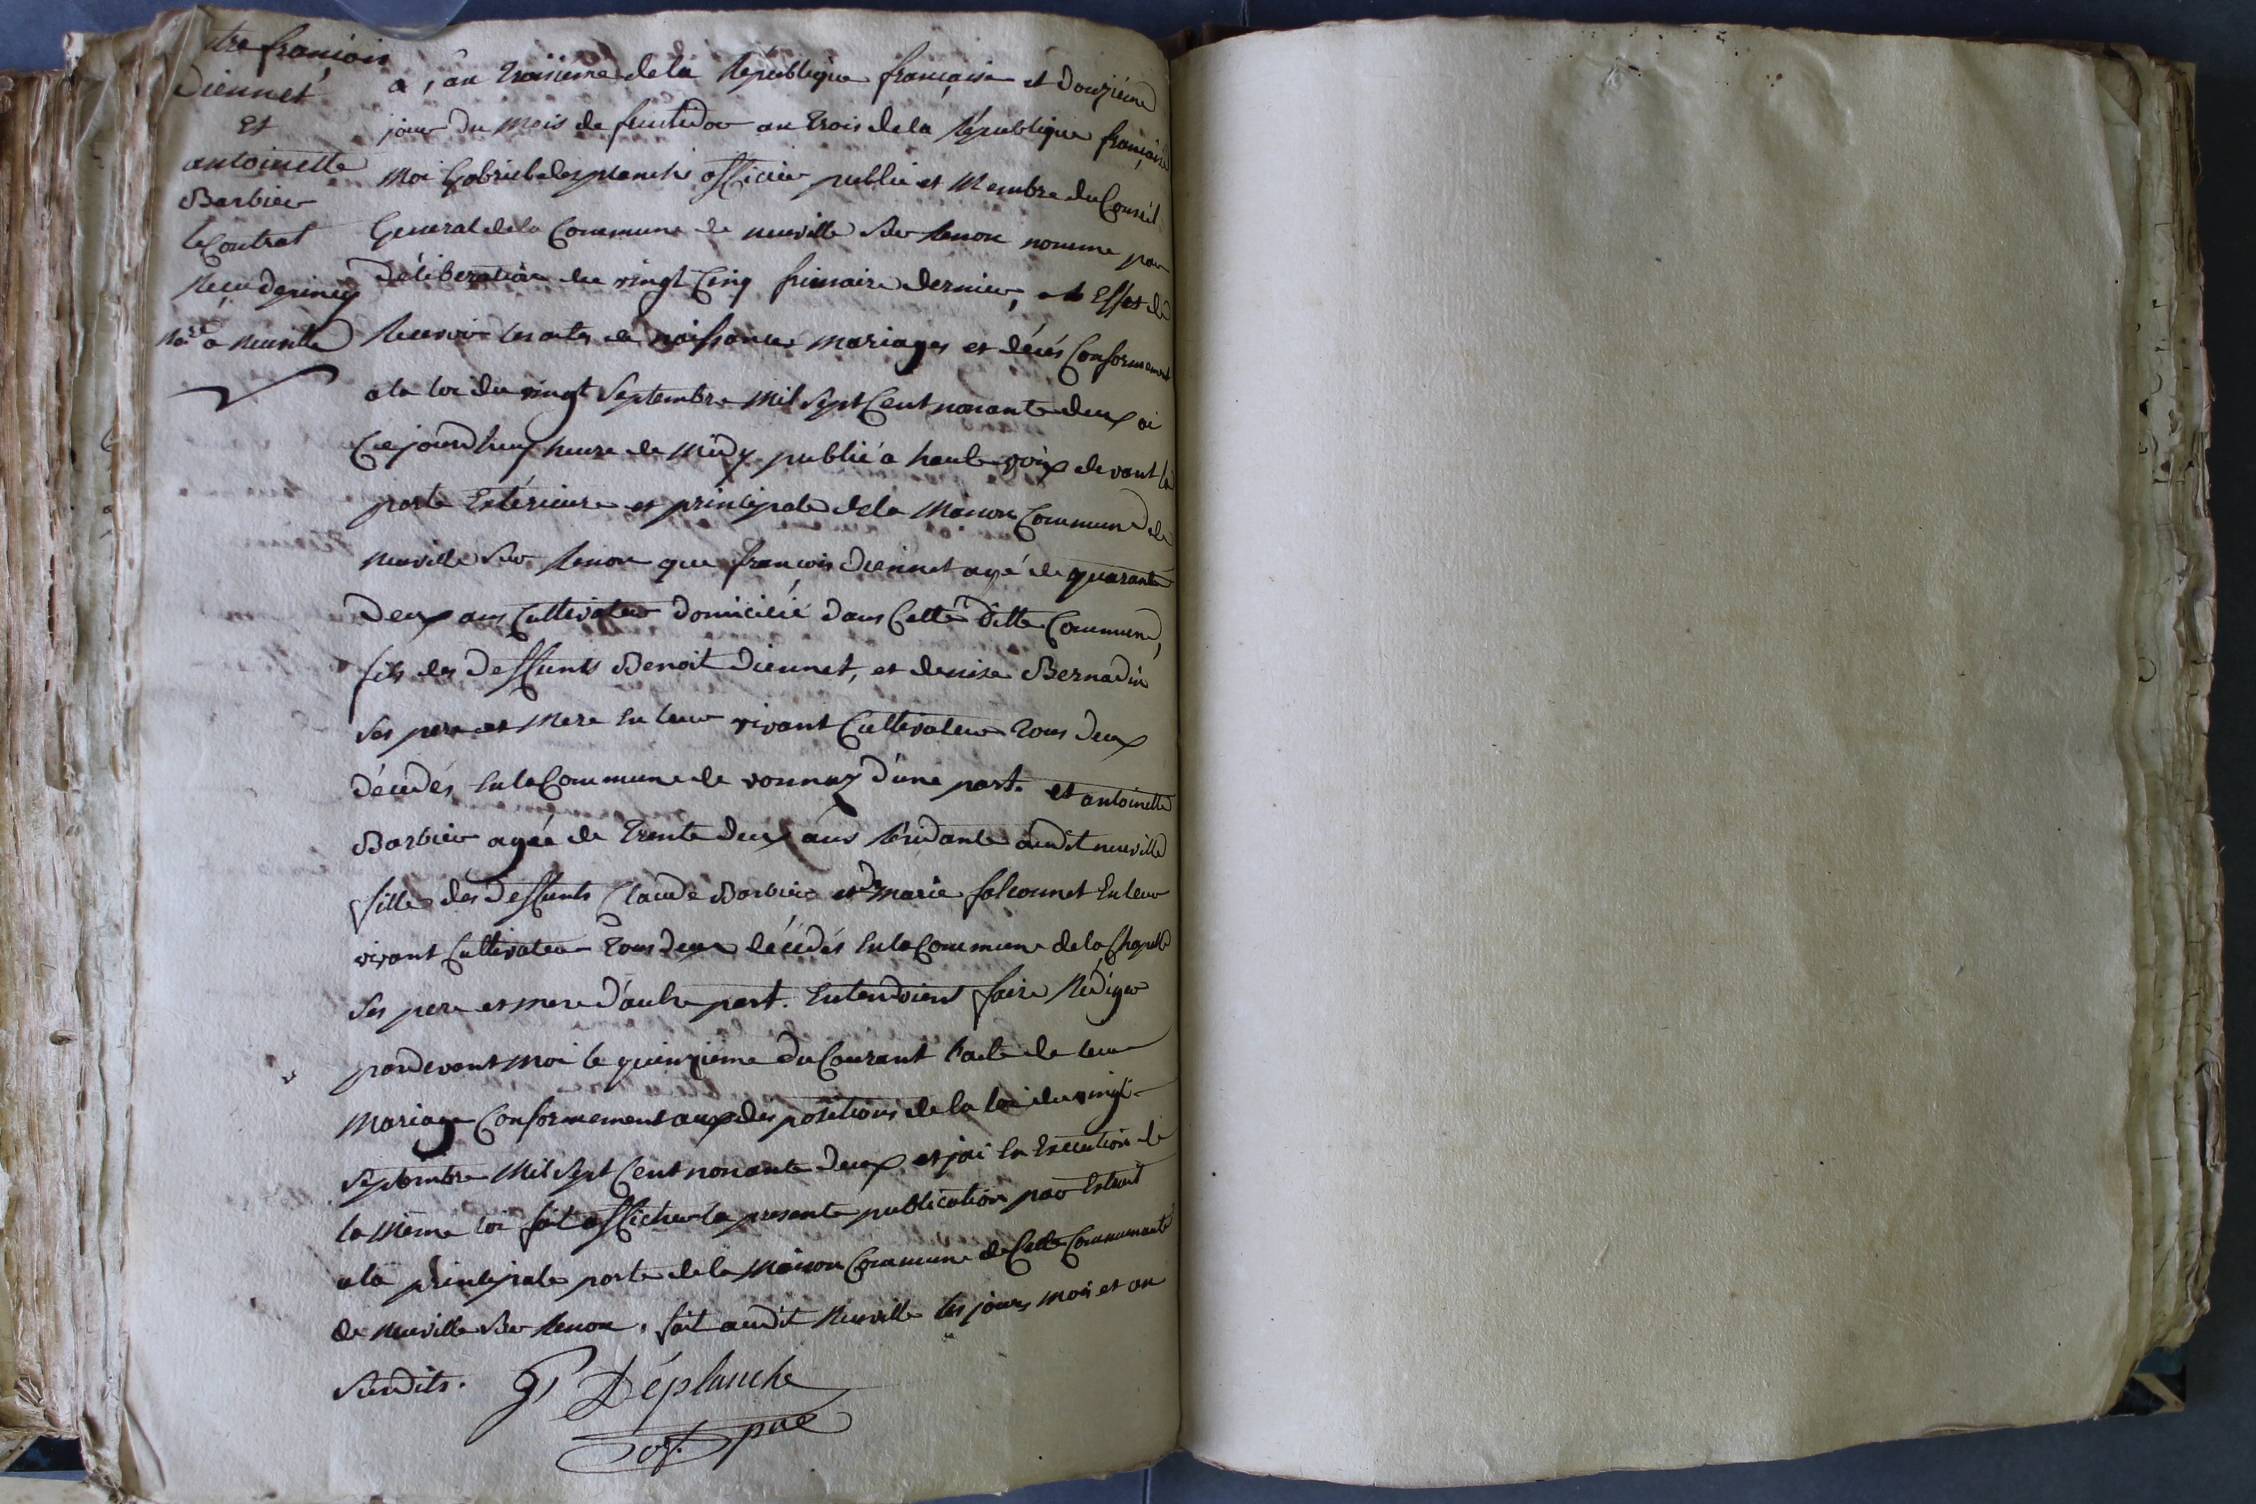 tre françois
Diennet
Et
antoinette
Barbier
le Contrat
Recu deriney
No.re a neuville
a, an troisieme de la Republique française et Douziéme
jour Du Mois de fructidor an trois de la République française
Moi Gabriel desplanche officier public et Membre du Conseil
General de la Commune de neuville sur Renon nomme par
déliberation du vingt Cinq frimaire dernier, a l'Effet de
Recevoir les actes de naissances mariages et décés Conformement
a la loi du vingt Septembre Mil Sept Cent nonante deux ai
Ce jourd'huy heure de midy publié a haute voix devant la
porte Extérieure et principale de la Maison Commune de
neuville sur Renon que françois Diennet agé de quarante
Deux ans Cultivateur domicilié dans Cette ditte Commune,
fils des deffunts Benoit Diennet, et denise Bernadin
Ses pere et Mere En leur vivant Cultivateur tous deux
décédés En la Commune de vonnaz d'une part. et antoinette
Barbier agée de trente deux ans Résidante audit neuville
fille des deffunts Claude Barbier et De marie falconnet En leur
vivant Cultivateur tous deux décédés En la Commune de la Chapelle
Ses pere et mere d'autre part. Entendoient faire Rédiger
pardevant moi le quinzieme du Courant l'acte de leur
Mariage Conformement aux des positions de la loi du vingt
Septembre Mil Sept Cent nonante deux, et j'ai En Execution de
la Même loi fait afficher la presente publication par Extrait
a la principale porte de la Maison Commune de Cette Communauté
de neuville sur Renon. fait audit Neuville les jours mois et an
Susdits. G Déplanche
off. pue